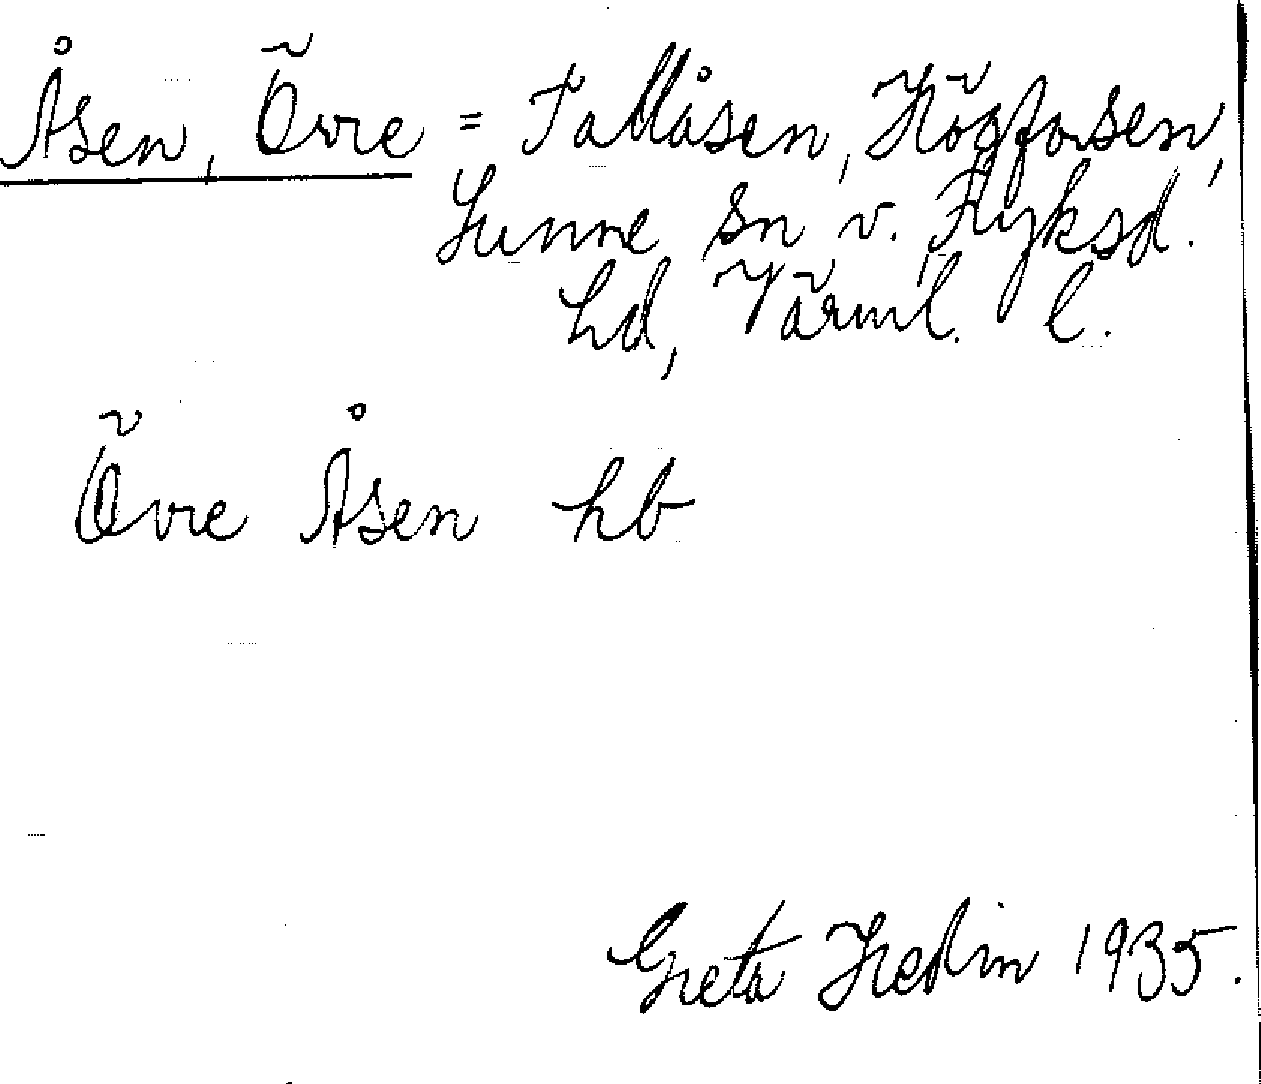 Åsen, Övre = Tallåsen, Högforsen,
Sunne sn v. Fryksd.
hd, Värml. l.
Övre Åsen hb
Greta Hedin 1935.